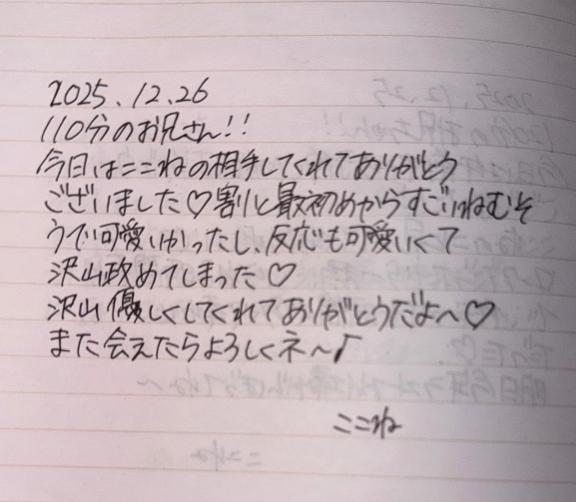 2025.12.26
110分のお兄さん!!
今日はここねの相手してくれてありがとう
ございました♡割と最初めからすごいねむそ
うで可愛いかったし、反応も可愛いくて
沢山攻めてしまった♡
沢山優しくしてくれてありがとうだよ〜♡
また会えたらよろしくネ〜♪
ここね